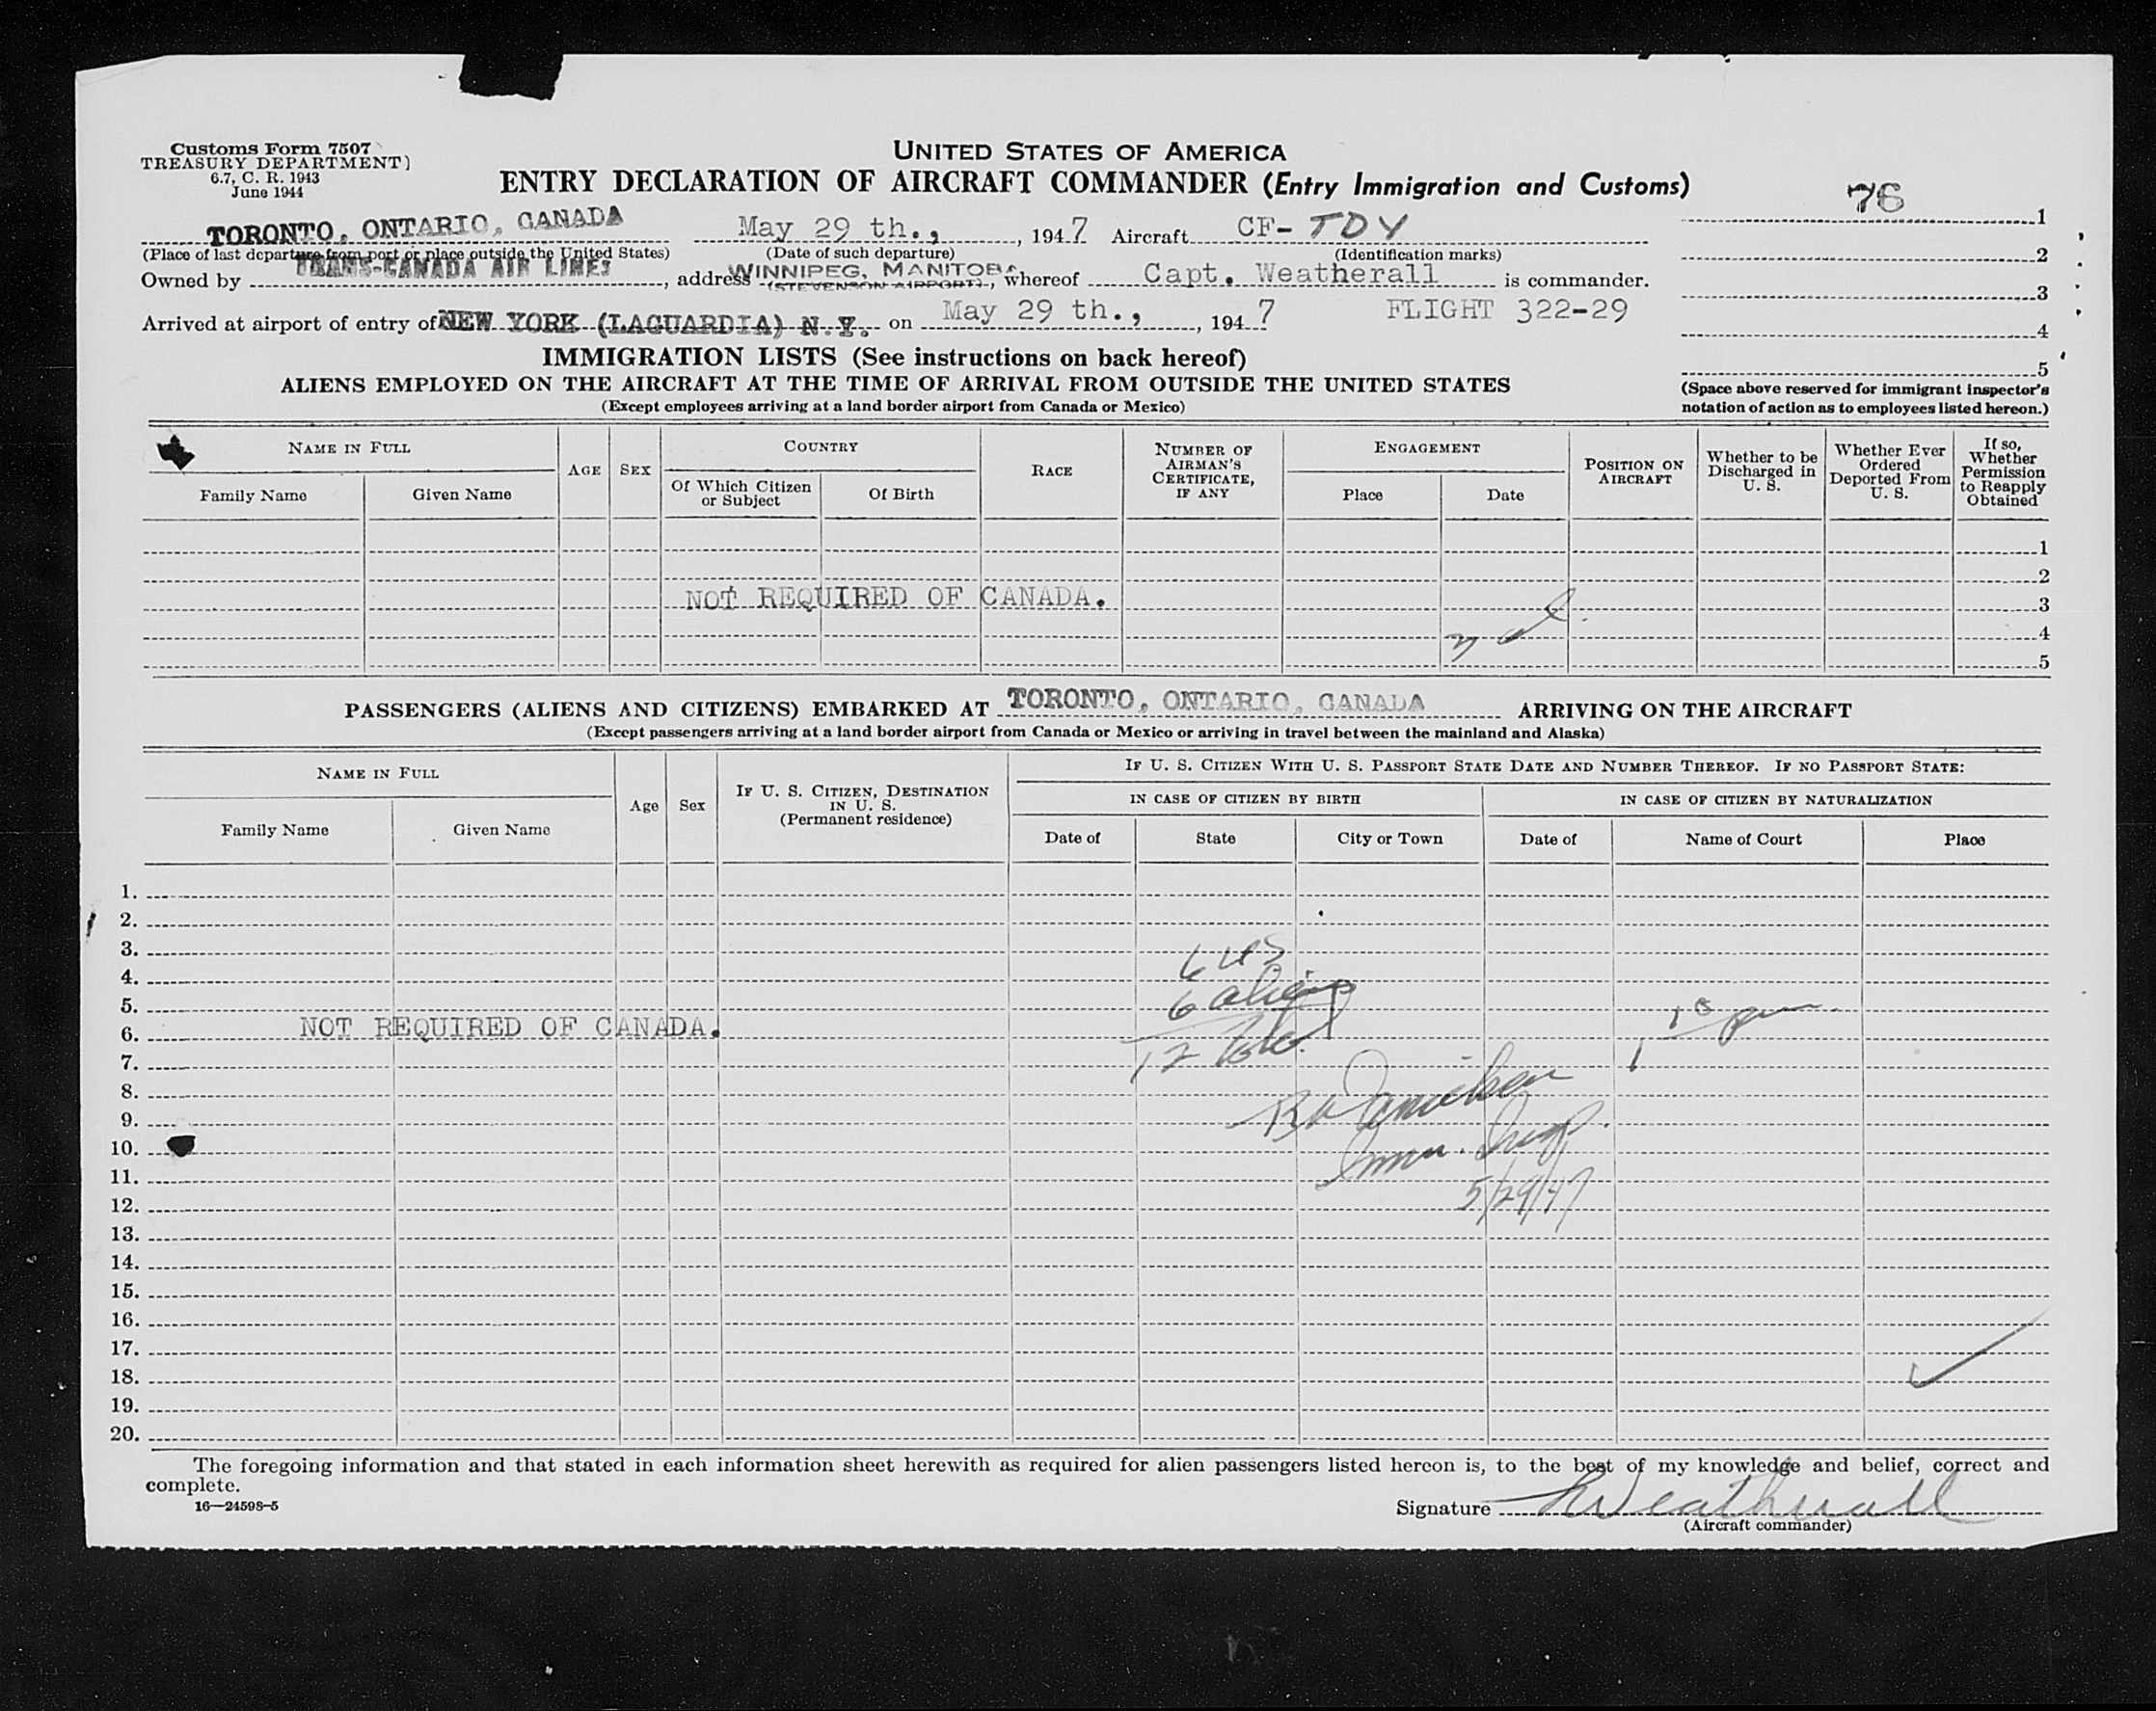 Customs Form 7507
TREASURY DEPARTMENT)
6.7, C. R. 1943
June 1944
UNITED STATES OF AMERICA
ENTRY DECLARATION OF AIRCRAFT COMMANDER (Entry Immigration and Customs)
76 1
TORONTO, ONTARIO, CANADA May 29 th., , 1947 Aircraft CF-TDY
(Place of last departure from port or place outside the United States) (Date of such departure) (Identification marks)
2
Owned by TRANS-CANADA AIR LINES, address WINNIPEG, MANITOBA (STEVENSON AIRPORT), whereof Capt. Weatherall is commander.
3
Arrived at airport of entry of NEW YORK (LAGUARDIA) N.Y. on May 29 th., , 1947 FLIGHT 322-29
4
IMMIGRATION LISTS (See instructions on back hereof)
5
ALIENS EMPLOYED ON THE AIRCRAFT AT THE TIME OF ARRIVAL FROM OUTSIDE THE UNITED STATES
(Space above reserved for immigrant inspector's
notation of action as to employees listed hereon.)
(Except employees arriving at a land border airport from Canada or Mexico)
NAME IN FULL
Family Name
Given Name
AGE
SEX
COUNTRY
Of Which Citizen
or Subject
Of Birth
RACE
NUMBER OF
AIRMAN'S
CERTIFICATE,
IF ANY
ENGAGEMENT
Place
Date
POSITION ON
AIRCRAFT
Whether to be
Discharged in
U. S.
Whether Ever
Ordered
Deported From
U. S.
If so,
Whether
Permission
to Reapply
Obtained
1
2
NOT REQUIRED OF CANADA. 3
4
5
PASSENGERS (ALIENS AND CITIZENS) EMBARKED AT TORONTO, ONTARIO, CANADA ARRIVING ON THE AIRCRAFT
(Except passengers arriving at a land border airport from Canada or Mexico or arriving in travel between the mainland and Alaska)
NAME IN FULL
Family Name
Given Name
Age
Sex
IF U. S. CITIZEN, DESTINATION
IN U. S.
(Permanent residence)
IF U. S. CITIZEN WITH U. S. PASSPORT STATE DATE AND NUMBER THEREOF. IF NO PASSPORT STATE:
IN CASE OF CITIZEN BY BIRTH
IN CASE OF CITIZEN BY NATURALIZATION
Date of
State
City or Town
Date of
Name of Court
Place
1.
2.
3. 6 US
4.
5. 6 aliens
6. NOT REQUIRED OF CANADA.
7. 12
8.
9.
10. Imm. Insp.
11.
12. 5/29/47
13.
14.
15.
16.
17.
18.
19.
20.
The foregoing information and that stated in each information sheet herewith as required for alien passengers listed hereon is, to the best of my knowledge and belief, correct and
complete.
16—24598-5
Signature Weatherall
(Aircraft commander)